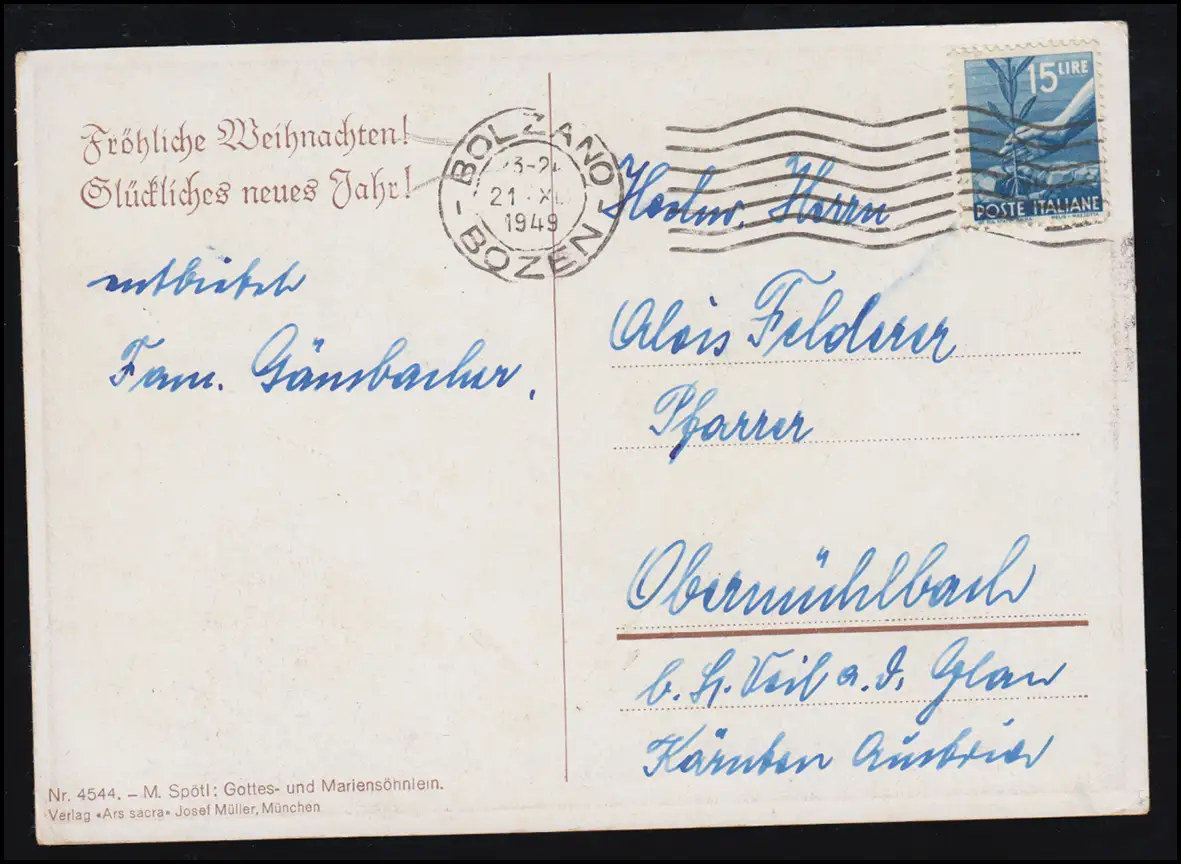 Fröhliche Weihnachten!
Glückliches neues Jahr!
entbieten
Fam. Gänsbacher.
Nr. 4544. – M. Spötl: Gottes- und Mariensöhnlein.
Verlag «Ars sacra» Josef Müller, München
BOLZANO
23-24
21 XI
1949
- BOZEN -
15 LIRE
POSTE ITALIANE
Hochw. Herrn
Alois Felderer
Pfarrer
Obermühlbach
b. St. Veit a. d. Glan
Kärnten Austria